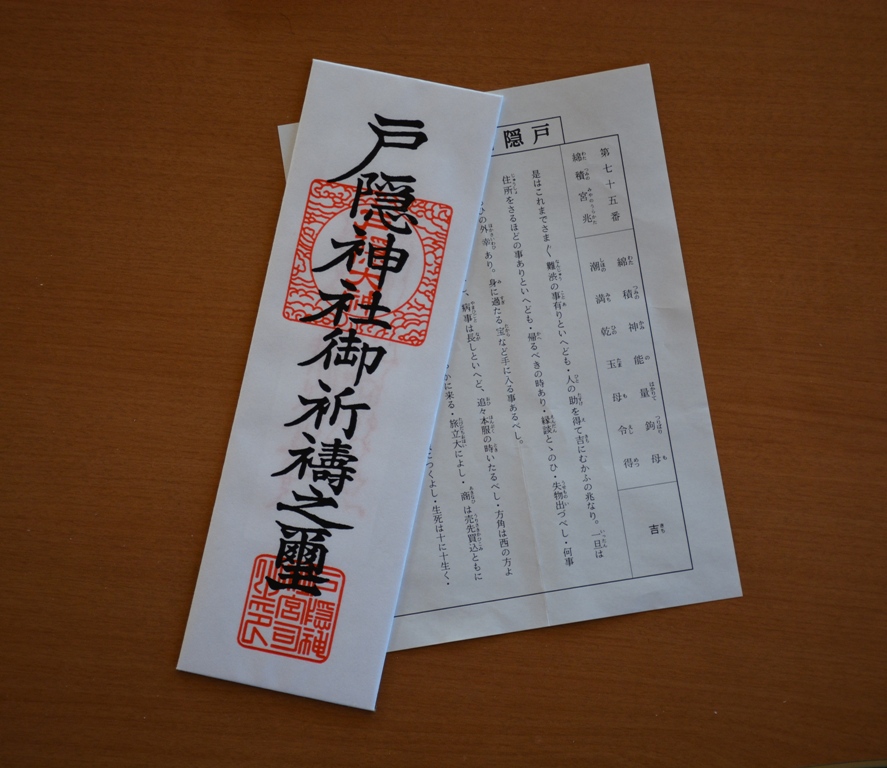 戸隠神社御祈禱之璽
戸隠
第七十五番
綿積宮兆
綿積神能量鉤母
潮満乾玉母令得
吉
是はこれまでさま〲難渋の事有りといへども・人の助を得て吉にむかふの兆なり。一旦は
住所をさるほどの事ありといへども・帰るべきの時あり・縁談とゝのひ・失物出づべし・何事
ひの外幸あり。身に過たる宝など手に入る事あるべし。
、病事は長しといへど、追々本服の時いたるべし・方角は西の方よ
かに来る・旅立大によし・商は売先買込ともに
につくよし・生死は十に十生く・